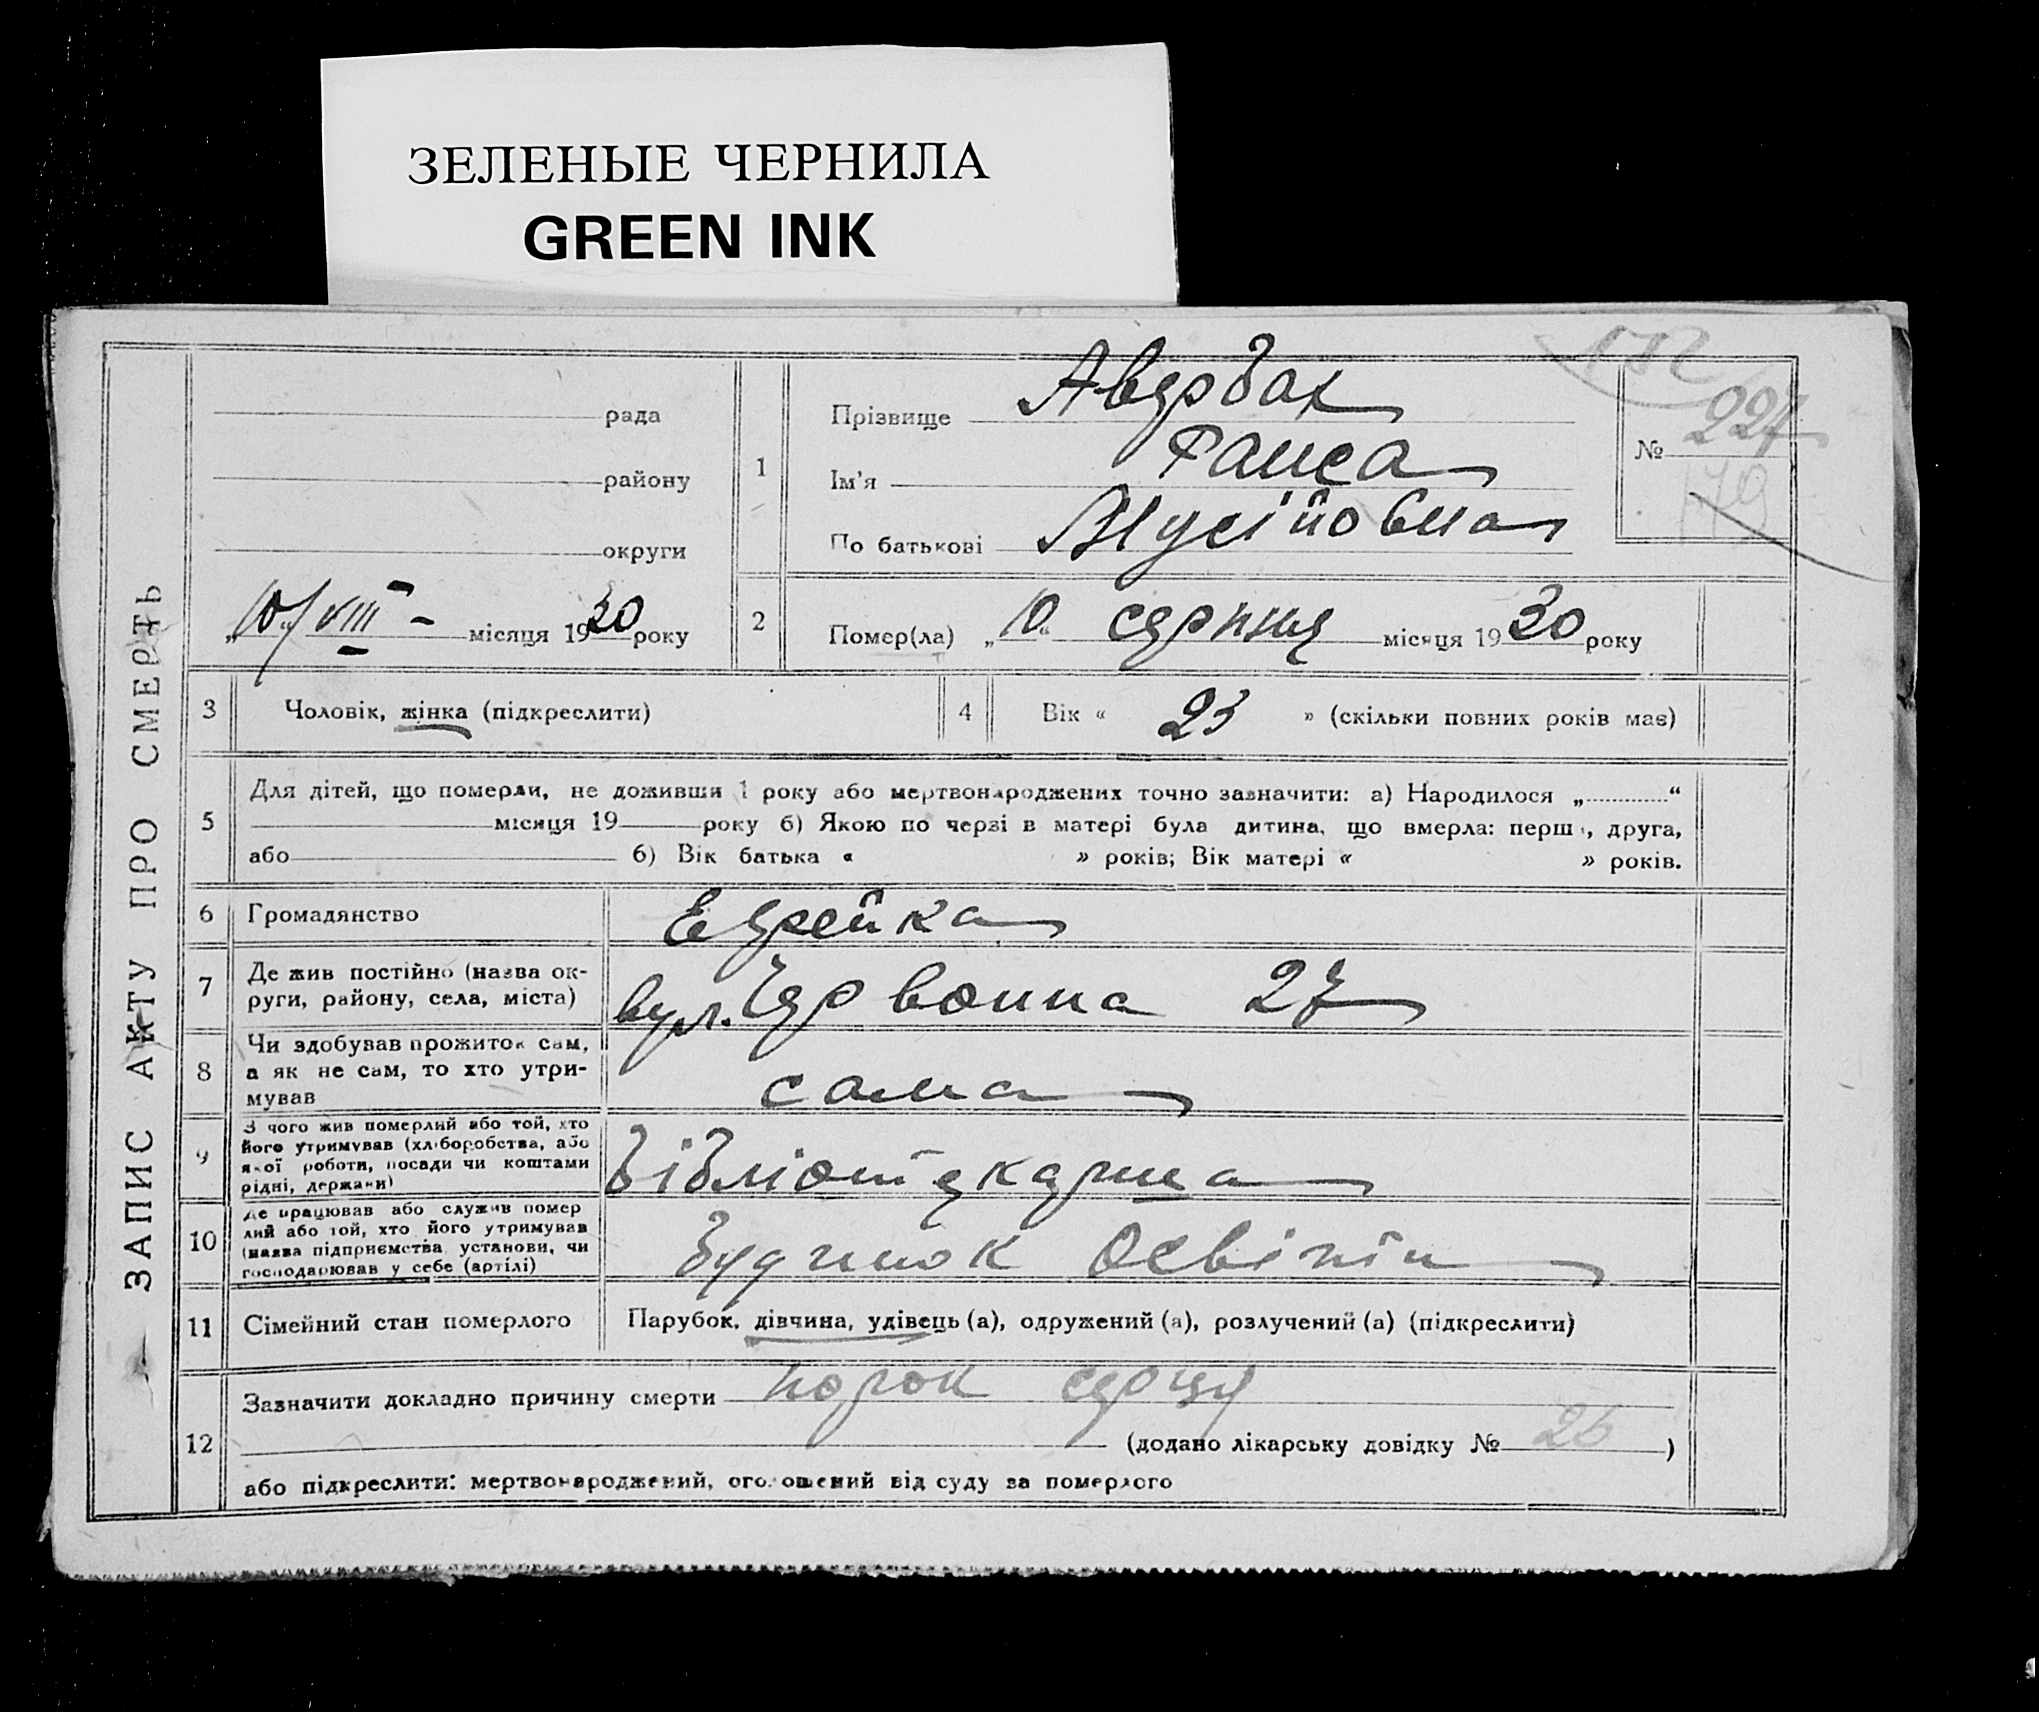 ЗЕЛЕНЫЕ ЧЕРНИЛА
GREEN INK
ЗАПИС АКТУ ПРО СМЕРТЬ
рада
району
округи
„10/VIII - місяця 1930 року
1
Прізвище Авербах
Ім'я Раиса
По батькові Мусійовна
№ 227
179
2
Помер(ла) „10“ серпня місяця 1930 року
3
Чоловік, жінка (підкреслити)
4
Вік « 23 » (скільки повних років має)
5
Для дітей, що померли, не доживши 1 року або мертвонароджених точно зазначити: а) Народилося „ “
місяця 19 року б) Якою по черзі в матері була дитина, що вмерла: перша, друга,
або б) Вік батька « » років; Вік матері « » років.
6
Громадянство
Еврейка
7
Де жив постійно (назва ок-
руги, району, села, міста)
вул. Червонна 27
8
Чи здобував прожиток сам,
а як не сам, то хто утри-
мував
сама
9
З чого жив померлий або той, хто
його утримував (хліборобства, або
якої роботи, посади чи коштами
рідні, держави)
бібліотекарша
10
Де працював або служив помер
лий або той, хто його утримував
(назва підприємства, установи, чи
господарював у себе (артілі)
Будинок Освіти
11
Сімейний стан померлого
Парубок, дівчина, удівець (а), одружений (а), розлучений (а) (підкреслити)
12
Зазначити докладно причину смерти порок серця
(додано лікарську довідку № 26 )
або підкреслити: мертвонароджений, оголошений від суду за померлого